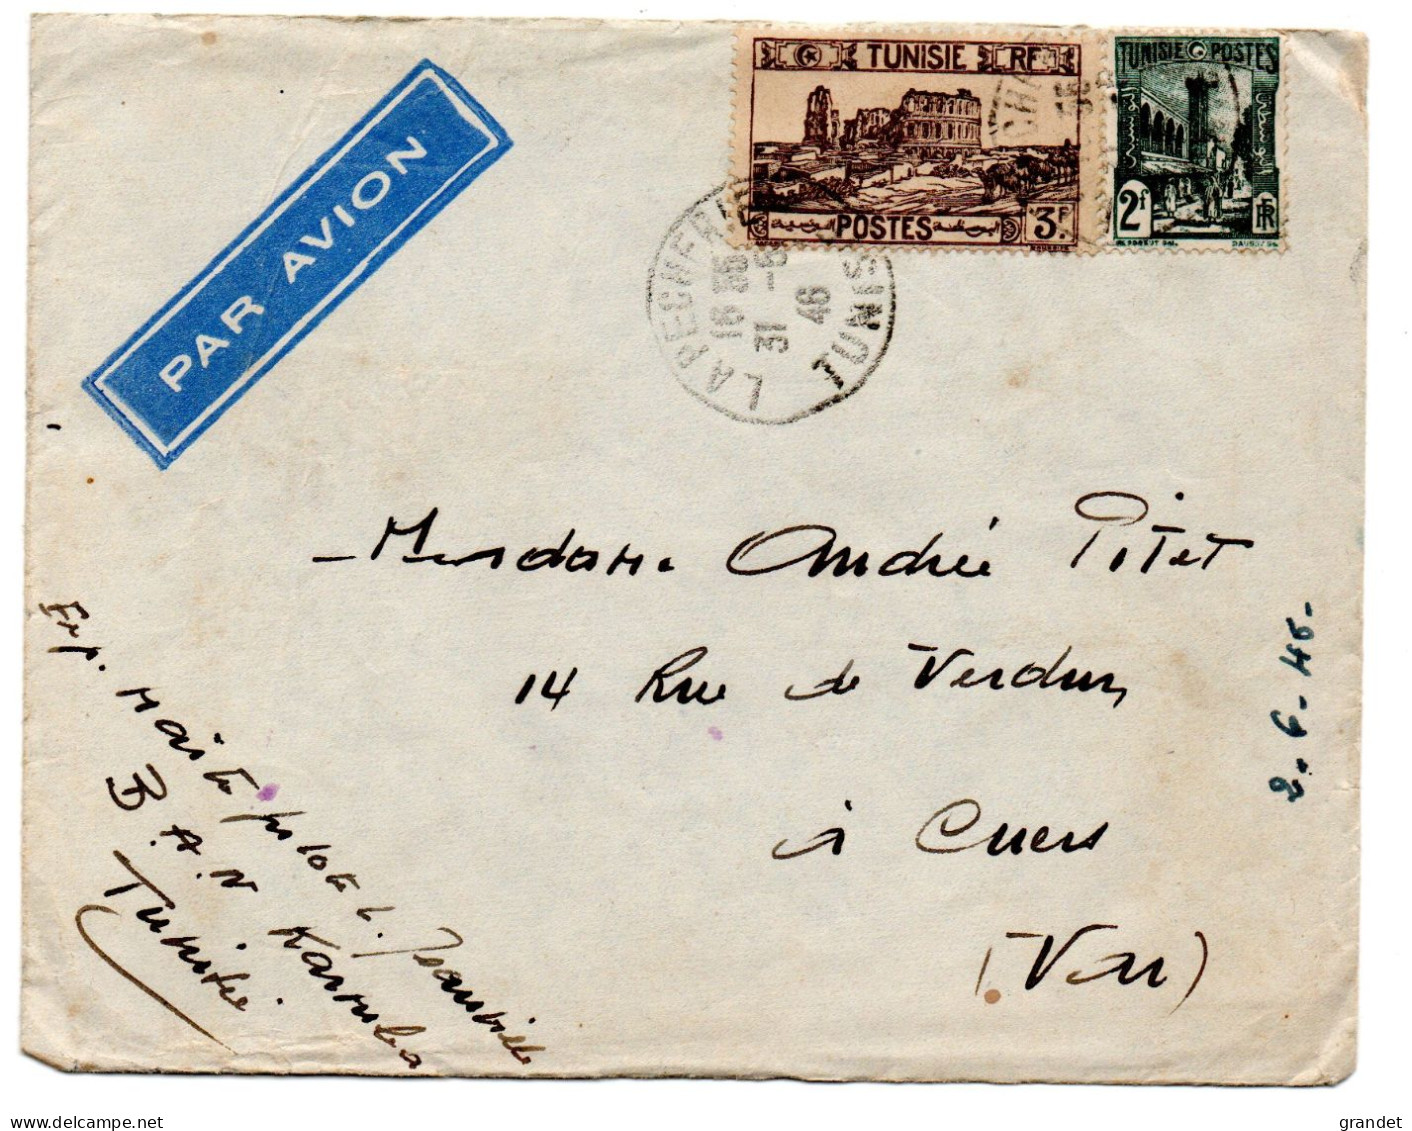 PAR AVION
TUNISIE RF
POSTES 3F
TUNISIE POSTES
2f RF
LA PECHERIE
16 55
31 -5
46
TUNISIE
Madame André Pitet
14 Rue de Verdun
à Cuers
(Var)
2-6-46-
Exp. Maître pilote
B.A.N Karouba
Tunisie
www.delcampe.net
grandet